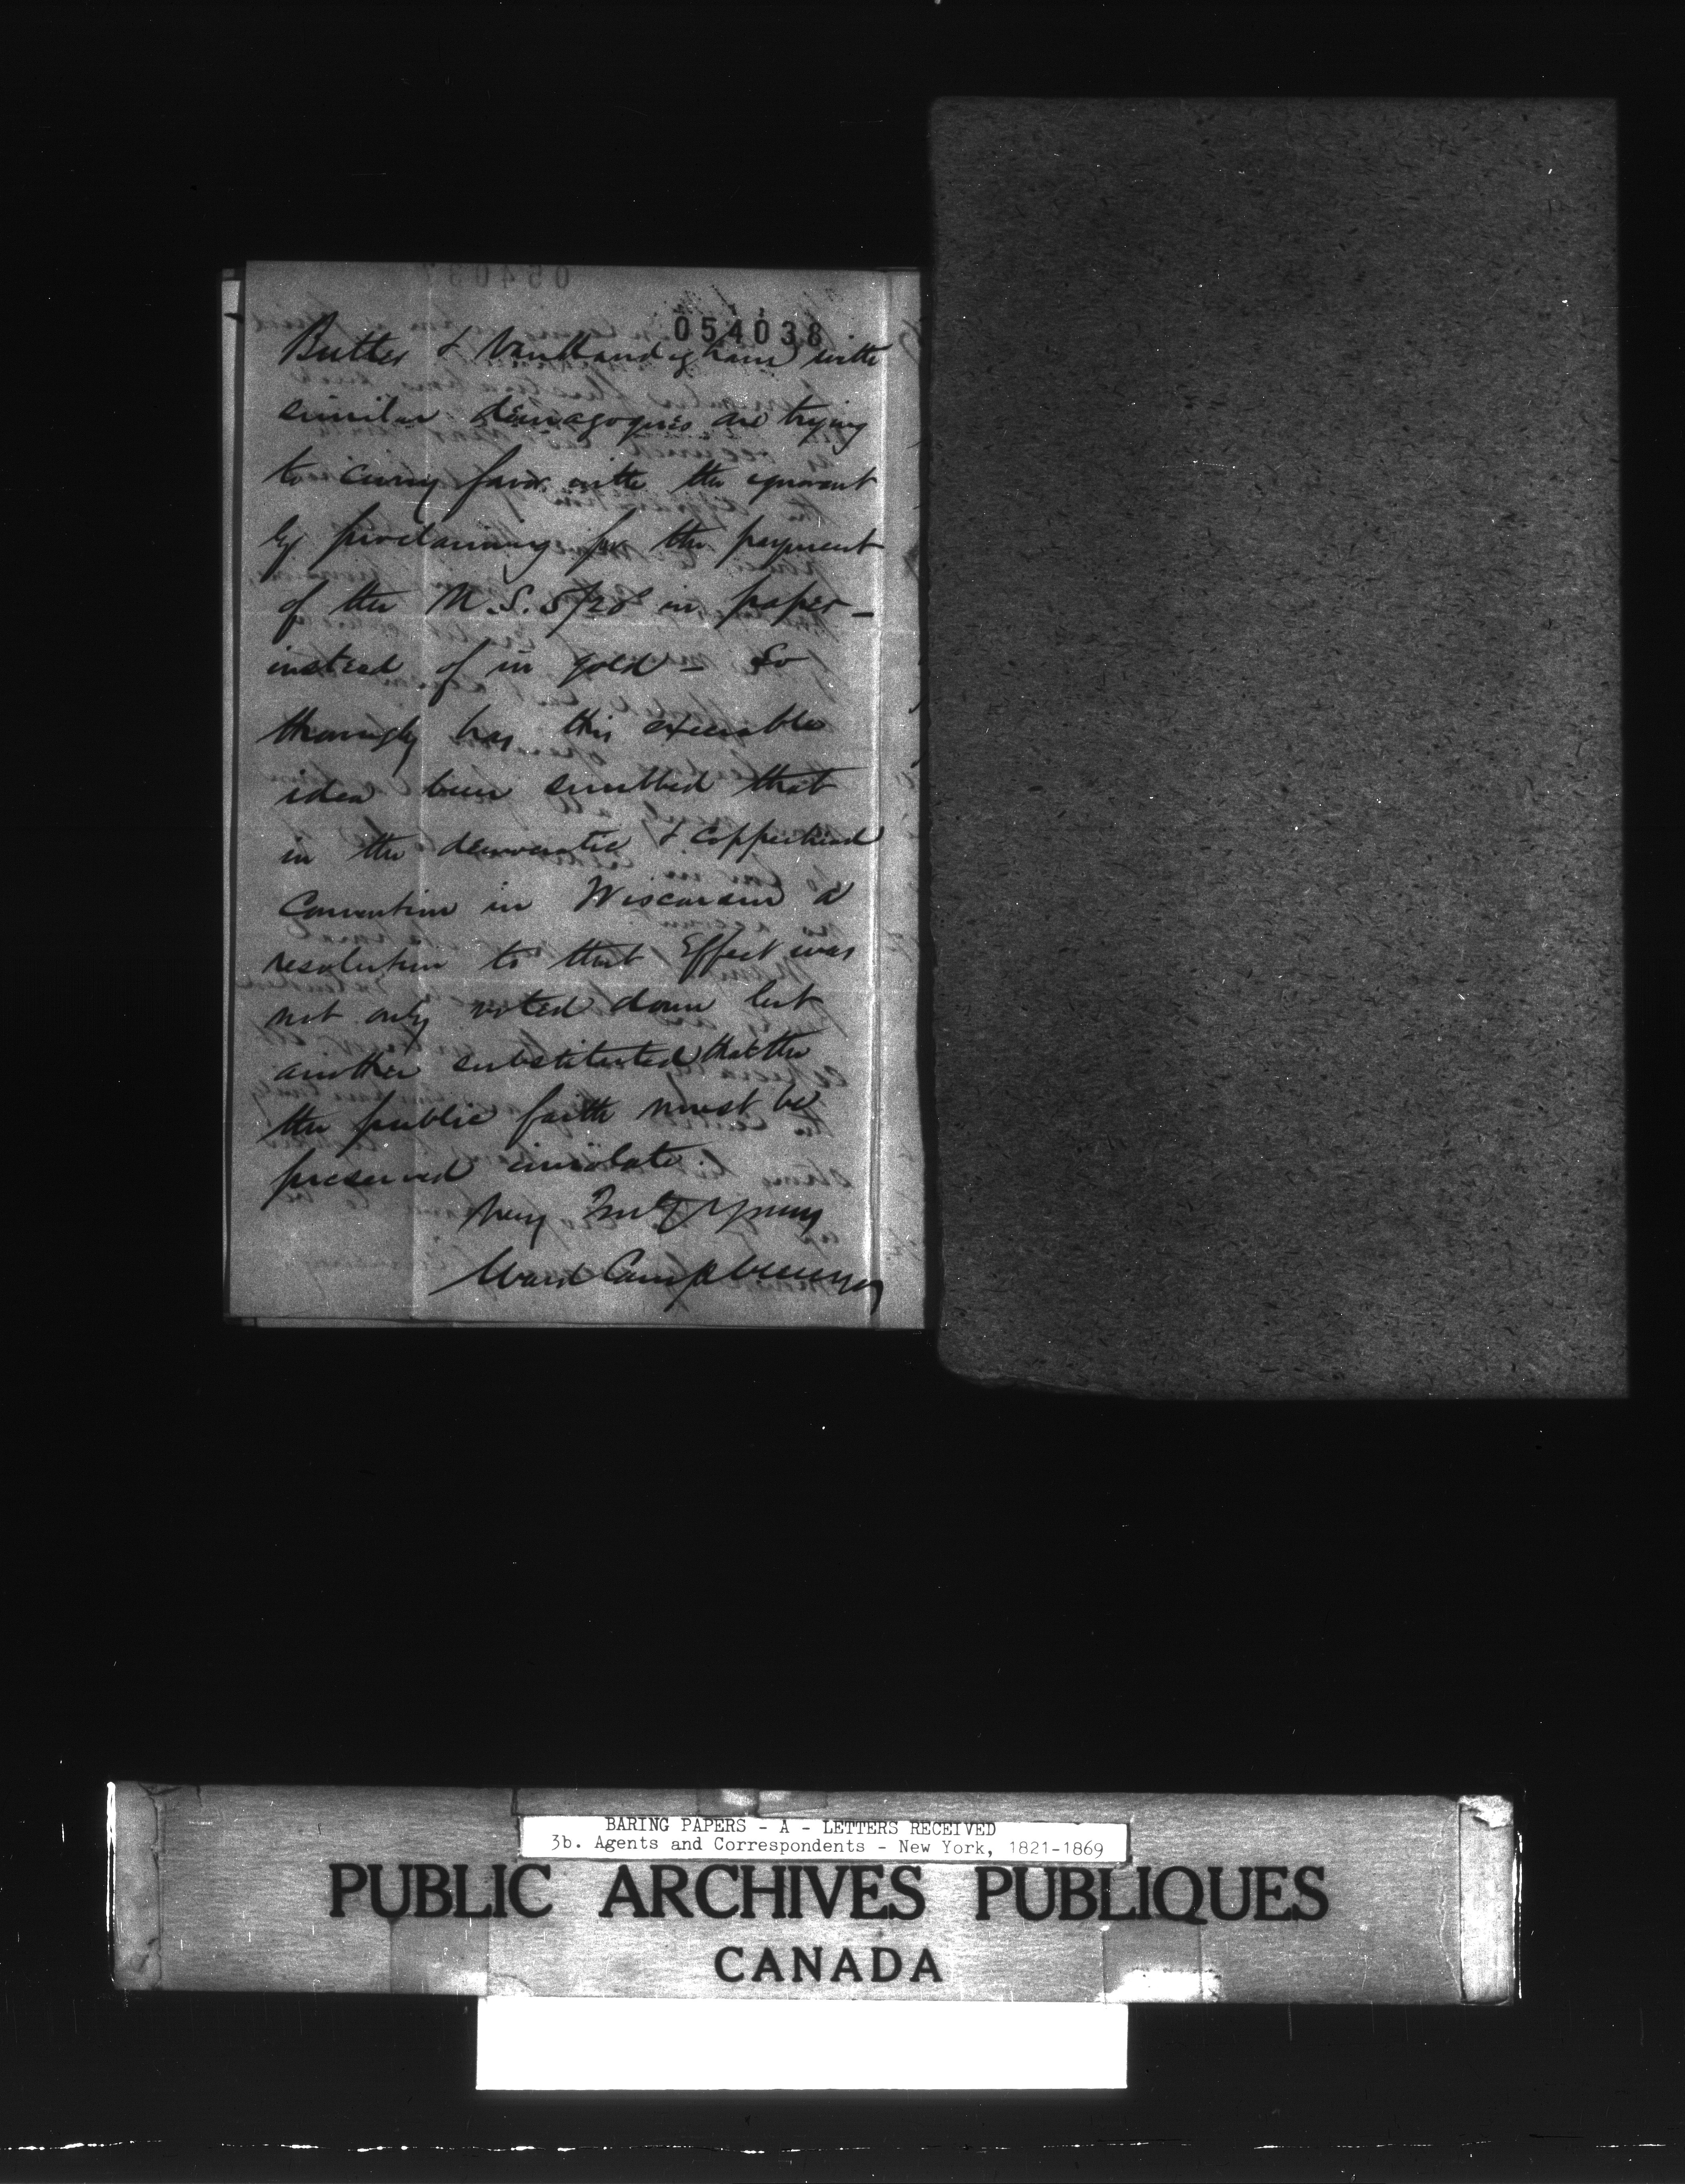 054038
Butler & Vanllandigham with
similar demagogues are trying
to curry favor with the ignorant
by proclaiming for the payment
of the U.S. 5/20s in paper —
instead of in gold — So
thouroughly has this execrable
idea been snubbed that
in the democratic & Copperhead
Convention in Wisconsin a
resolution to that Effect was
not only voted down but
another substituted that the
the public faith must be
preserved inviolate.
Very Truly Yours
Ward Campbell
BARING PAPERS - A - LETTERS RECEIVED
3b. Agents and Correspondents - New York, 1821-1869
PUBLIC ARCHIVES PUBLIQUES
CANADA